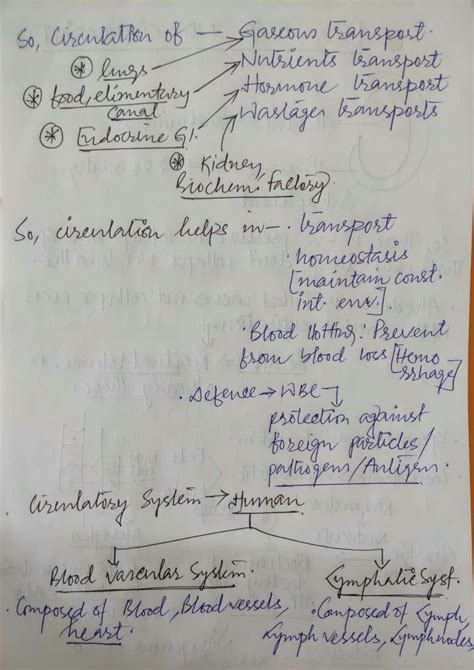 So, Circulation of — Gaseous transport.
⊛ lungs Nutrients transport
⊛ food, elimentary Hormone transport
canal Wastages transports
⊛ Endocrine Gl.
⊛ Kidney,
Biochem. Factory.
So, circulation helps in — · transport
· homeostasis
[maintain const.
int. env.].
· Blood Clotting: Prevent
from blood loss [Hemo
rrhage]
· Defence → WBC
protection against
foreign particles/
pathogens/Antigens.
Circulatory System → Human
Blood Vascular System. Lymphatic Syst.
· Composed of Blood, Blood vessels, · Composed of Lymph,
heart. Lymph vessels, Lymphnodes